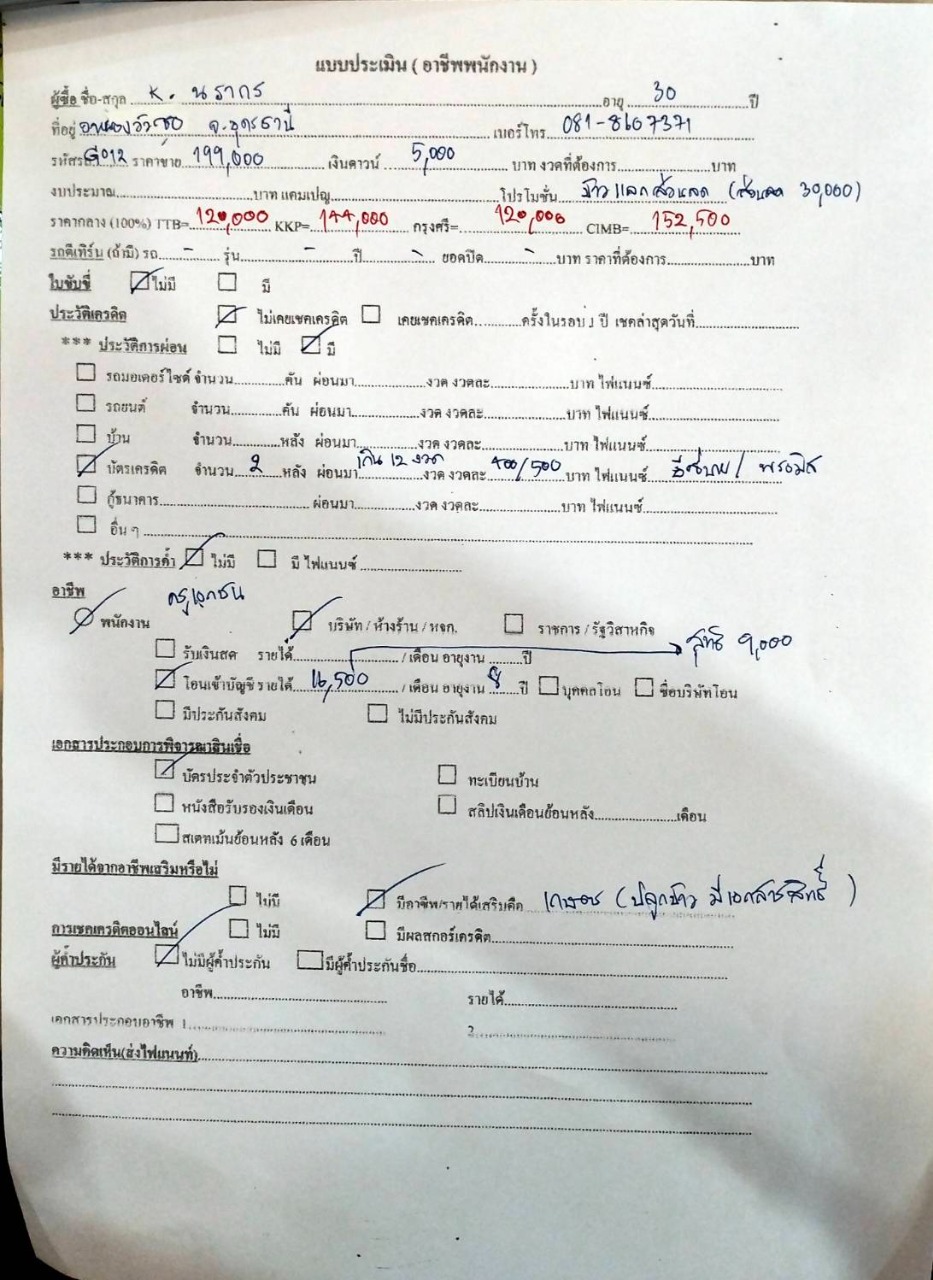 แบบประเมิน ( อาชีพพนักงาน )
ผู้ซื้อ ชื่อ-สกุล K. นรากร อายุ 30 ปี
ที่อยู่ อ.หนองวัวซอ จ.อุดรธานี เบอร์โทร 081-8607371
รหัสรถ G012 ราคาขาย 199,000 เงินดาวน์ 5,000 บาท งวดที่ต้องการ บาท
งบประมาณ บาท แคมเปญ โปรโมชั่น ข้าวแลกส่วนลด (ส่วนลด 30,000)
ราคากลาง (100%) TTB= 120,000 KKP= 144,000 กรุงศรี= 120,000 CIMB= 152,500
รถตีเทิร์น (ถ้ามี) รถ - รุ่น - ปี - ยอดปิด - บาท ราคาที่ต้องการ บาท
ใบขับขี่ ไม่มี มี
ประวัติเครดิต ไม่เคยเชคเครดิต เคยเชคเครดิต ครั้งในรอบ 1 ปี เชคล่าสุดวันที่
*** ประวัติการผ่อน ไม่มี มี
รถมอเตอร์ไซด์ จำนวน คัน ผ่อนมา งวด งวดละ บาท ไฟแนนซ์
รถยนต์ จำนวน คัน ผ่อนมา งวด งวดละ บาท ไฟแนนซ์
บ้าน จำนวน หลัง ผ่อนมา งวด งวดละ บาท ไฟแนนซ์
บัตรเครดิต จำนวน 2 หลัง ผ่อนมา เกิน 12 งวด งวด งวดละ 400/500 บาท ไฟแนนซ์ อีซี่บาย / พรอมิส
กู้ธนาคาร ผ่อนมา งวด งวดละ บาท ไฟแนนซ์
อื่น ๆ
*** ประวัติการค้ำ ไม่มี มี ไฟแนนซ์
อาชีพ ครูเอกชน
พนักงาน บริษัท / ห้างร้าน / หจก. ราชการ / รัฐวิสาหกิจ
รับเงินสด รายได้ / เดือน อายุงาน ปี สุทธิ 9,000
โอนเข้าบัญชี รายได้ 16,500 / เดือน อายุงาน 8 ปี บุคคลโอน ชื่อบริษัทโอน
มีประกันสังคม ไม่มีประกันสังคม
เอกสารประกอบการพิจารณาสินเชื่อ
บัตรประจำตัวประชาชน ทะเบียนบ้าน
หนังสือรับรองเงินเดือน สลิปเงินเดือนย้อนหลัง เดือน
สเตทเม้นย้อนหลัง 6 เดือน
มีรายได้จากอาชีพเสริมหรือไม่
ไม่มี มีอาชีพ/รายได้เสริมคือ เกษตร (ปลูกข้าว มีเอกสารสิทธิ์)
การเชคเครดิตออนไลน์ ไม่มี มีผลสกอร์เครดิต
ผู้ค้ำประกัน ไม่มีผู้ค้ำประกัน มีผู้ค้ำประกันชื่อ
อาชีพ รายได้
เอกสารประกอบอาชีพ 1 2
ความคิดเห็น(ส่งไฟแนนท์)